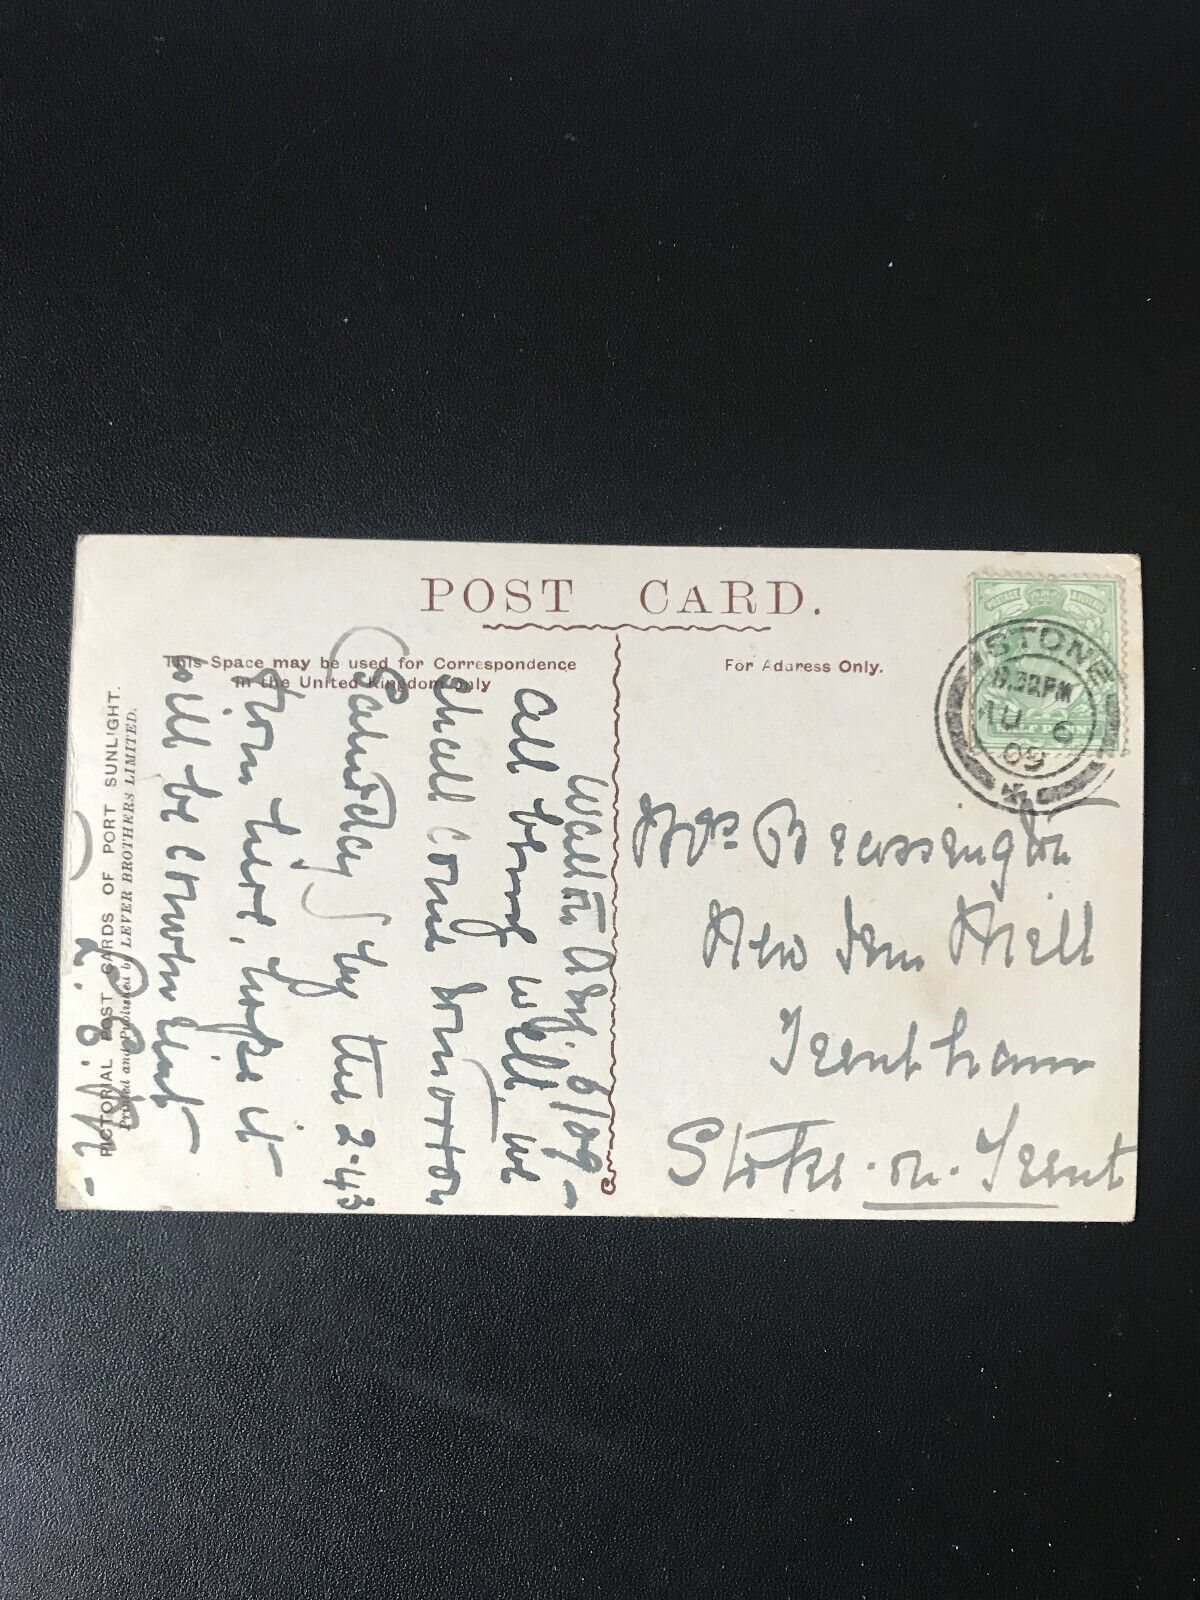 POST CARD.
This Space may be used for Correspondence
in the United Kingdom only
For Address Only.
PICTORIAL POST CARDS OF PORT SUNLIGHT.
Printed and Published by LEVER BROTHERS LIMITED.
STONE
PM
AU 6
09
Walton Aug 6/09 -
All being well, we
shall come tomorrow
(Saturday) by the 2-43
from here, hope it
will be convenient -
Mrs
New Inn Mill
Trentham
Stoke-on-Trent